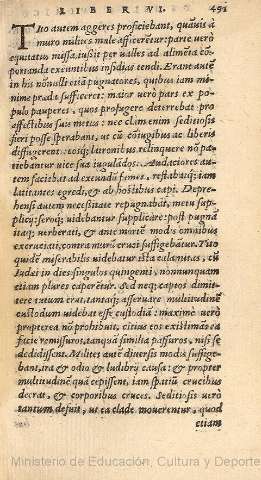 LIBER VI. 491
Tito autem aggeres proficiebant, quāuis a
muro milites male afficerētur: parte verò
equitatus missa, iußit per ualles ad alimēta cō
portanda exeuntibus insidias tendi. Erant autē
in his nōnulli etiā pugnatores, quibus iam mi-
nime prada sufficeret: maior verò pars ex po-
pulo pauperes, quos profugere deterrebat pro
affectibus suis metus: nec clam enim seditiosis
fieri posse sperabant, ut cū cōiugibus ac liberis
diffugerent: eosq; latronibus relinquere nō pa-
tiebantur vice sua iugulādos. Audaciores au-
tem faciebat ad exeundū fames, restabatq́; iam
latitantes egredi, & ab hostibus capi. Depre-
hensi autem necessitate repugnabāt, metu sup-
plicij: seroq; uidebantur supplicare: post pugnā
itaq; verberati, & ante mortē modis omnibus
excruciati, contra murū cruci suffigebātur. Tito
quidē miserabilis uidebatur ista calamitas, cū
Iudæi in dies singulos quingenti, nonnunquam
etiam plures caperētur. Sed neq; captos dimit-
tere tutum erat, tantaq; asseruare multitudinē
custodum uidebat esse custodiā: maximè verò
propterea nō prohibuit, citius eos existimās ea
facie remissuros, tanquā similia passuros, nisi se
dedidissent. Milites autē diuersis modis suffige-
bant, ira & odio & ludibrij causa: & propter
multitudinē quā cepissent, iam spatiū crucibus
deerat, & corporibus cruces. Seditiosis verò
tantum defuit, ut ea clade mouerentur, quod
etiam
Ministerio de Educación, Cultura y Deporte